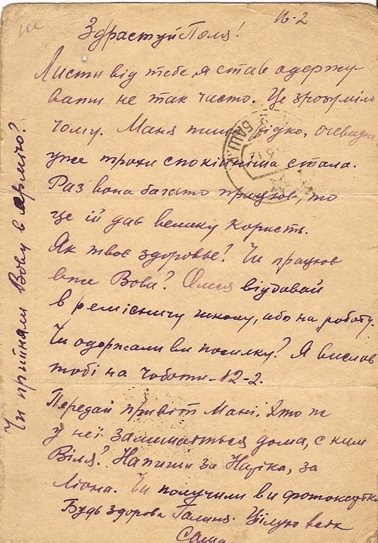 16-2
Здраствуй Поля!
Листи від тебе я став одержу
вати не так часто. Це зрозуміло
чому. Маня пише рідко, очевидно
уже трохи спокійніша стала.
Раз вона багато працює, то
це їй дав велику користь.
Як твоє здоровье? Чи працює
вже Вова? Олеся віддавай
в ремісничу школу, або на роботу.
Чи одержали ви посилку? Я вислав
тобі на чоботи 12-2.
Передай привіт Мані, Хто ж
у неї залишається дома, с ким
Віля? Напиши за Націка, за
Льона. Чи получили ви фотокарточ
Будь здорова Галина. Цілую всех
Саша
Чи прийняли Вову в армію?